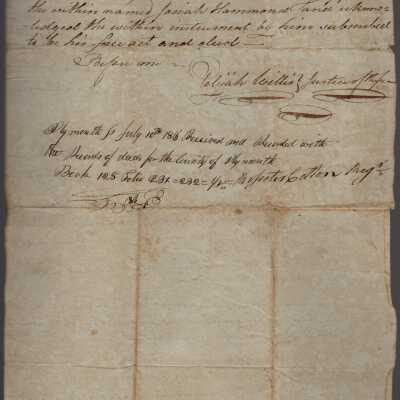 the within named Josiah Hammond and acknow=
=ledged the within instrument by him subscribed
to be his free act and deed —
Before me —
Elijah Willis } Justice of Peace
Plymouth Ss July 10th Received and Recorded with
the Records of deeds for the County of Plymouth
Book 125 Folio 231=232= Rossiter Cotton Regr